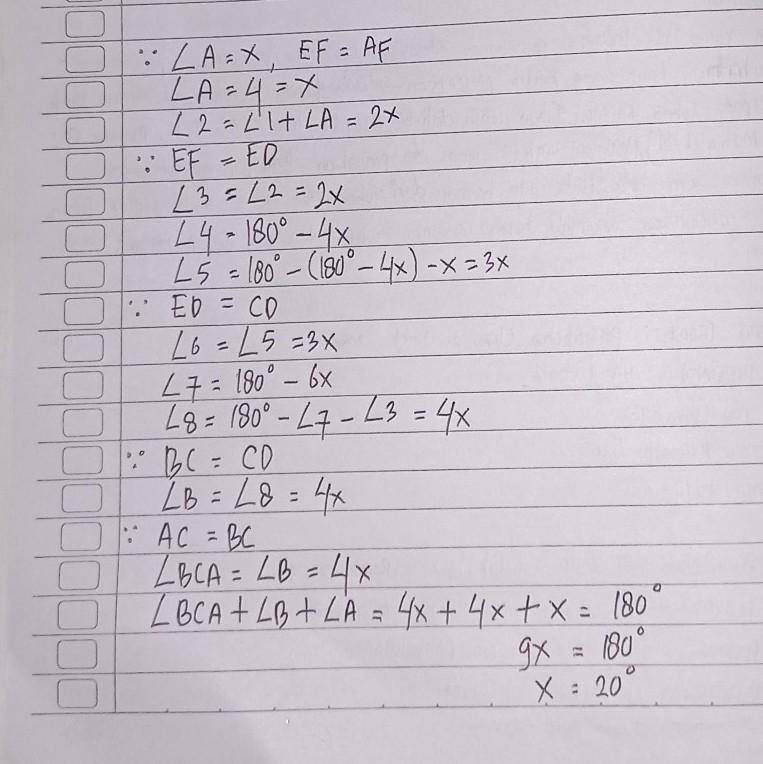 ∵ ∠A = x, EF = AF
∠A = 4 = x
∠2 = ∠1 + ∠A = 2x
∵ EF = ED
∠3 = ∠2 = 2x
∠4 = 180° - 4x
∠5 = 180° - (180° - 4x) - x = 3x
∵ ED = CD
∠6 = ∠5 = 3x
∠7 = 180° - 6x
∠8 = 180° - ∠7 - ∠3 = 4x
∵ BC = CD
∠B = ∠8 = 4x
∵ AC = BC
∠BCA = ∠B = 4x
∠BCA + ∠B + ∠A = 4x + 4x + x = 180°
9x = 180°
x = 20°